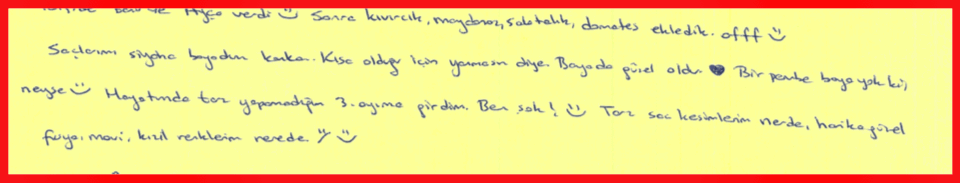 verdi ☺ Sonra kıvırcık, maydanoz, salatalık, domates ekledik. offf ☺
Saçlarımı siyaha boyadım kanka. Kısa olduğu için yanmasın diye. Baya da güzel oldu ♥ Bir pembe boya yok ki,
neyse ☺ Hayatımda tarz yapamadığım 3. ayıma girdim. Ben şok! ☺ Tarz saç kesimlerim nerde, harika güzel
fuşya, mavi, kızıl renklerim nerede. ☺